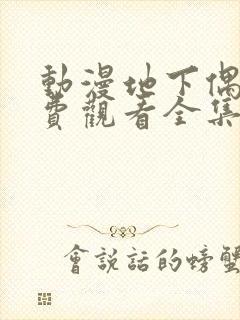 動漫地下偶
費觀看全集
會說話的螃蟹